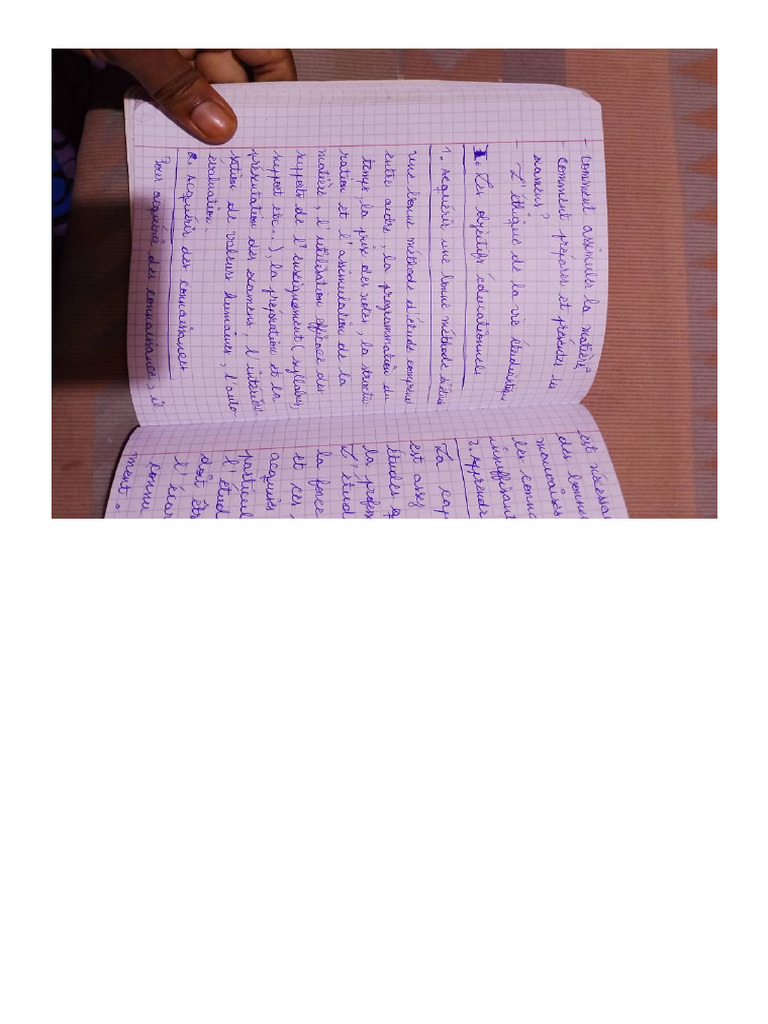 - Comment assimiler la matière?
- Comment préparer et présenter les
examens?
- L'éthique de la vie étudiantine.
I. Les objectifs éducationnels
1. Acquérir une bonne méthode d'étude
Une bonne méthode d'étude comprend
entre autre, la programmation du
temps, la prise des notes, la structu-
ration et l'assimilation de la
matière, l'utilisation efficace des
supports de l'enseignement (syllabus,
support etc...), la préparation et la
présentation des examens, l'intériori-
sation de valeurs humaines, l'auto-
evaluation.
2. Acquérir des connaissances
Pour acquérir des connaissances, il
est nécessai
des bonnes
mauvaises
les conna
insuffisant
3. Apprendre
La cap
est asse
études
la profess
L'étud
la force
et ces
acquises
particul
l'étud
doit êtr
l'écar
connu
ment.